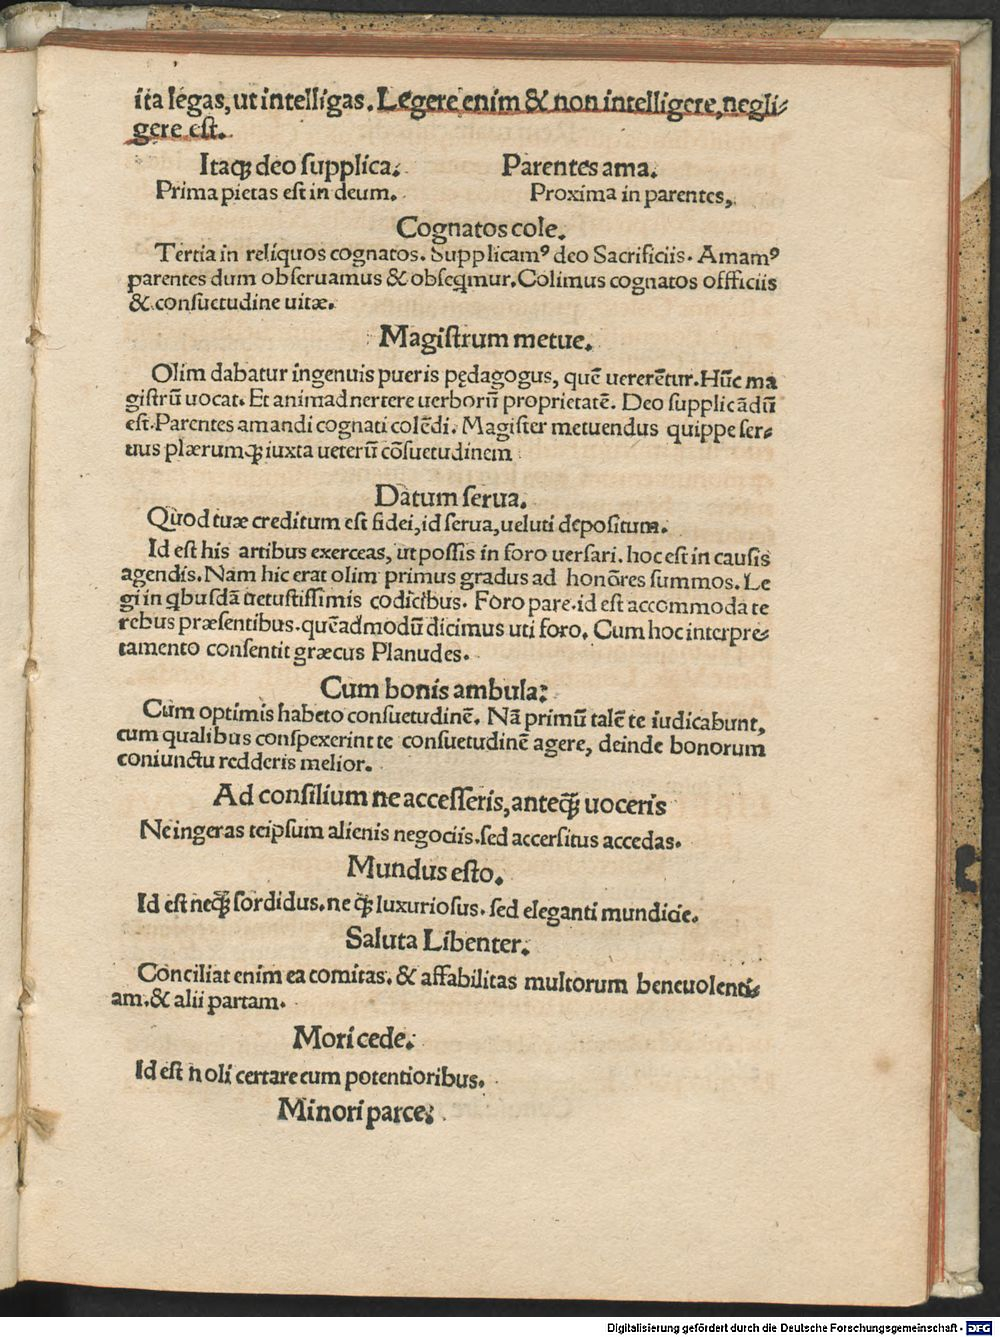 ita legas, ut intelligas. Legere enim & non intelligere, negli⸗
gere est.
Itaqꝫ deo supplica. Parentes ama.
Prima pietas est in deum. Proxima in parentes,
Cognatos cole.
Tertia in reliquos cognatos. Supplicamꝰ deo Sacrificiis. Amamꝰ
parentes dum obseruamus & obseqmur. Colimus cognatos offficiis
& consuetudine uitæ.
Magistrum metue.
Olim dabatur ingenuis pueris pędagogus, quē uererētur. Hūc ma
gistrū uocat. Et animadnertere uerborū proprietatē. Deo supplicādū
est. Parentes amandi cognati colēdi. Magister metuendus quippe ser⸗
uus plærumqꝫ iuxta ueterū cōsuetudinem
Datum serua.
Quod tuæ creditum est fidei, id serua, ueluti depositum.
Id est his artibus exerceas, ut possis in foro uersari. hoc est in causis
agendis. Nam hic erat olim primus gradus ad honōres summos. Le
gi in qbusdā uetustissimis codicibus. Foro pare. id est accommoda te
rebus præsentibus. quēadmodū dicimus uti foro. Cum hoc interpre⸗
tamento consentit græcus Planudes.
Cum bonis ambula:
Cum optimis habeto consuetudinē. Nā primū talē te iudicabunt,
cum qualibus conspexerint te consuetudinē agere, deinde bonorum
coniunctu redderis melior.
Ad consilium ne accesseris, anteqꝫ̄ uoceris
Ne ingeras teipsum alienis negociis. sed accersitus accedas.
Mundus esto.
Id est neqꝫ̄ sordidus. ne qꝫ̄ luxuriosus. sed eleganti mundicie.
Saluta Libenter.
Conciliat enim ea comitas. & affabilitas multorum beneuolenti⸗
am. & alii partam.
Mori cede.
Id est noli certare cum potentioribus.
Minori parce.
Digitalisierung gefördert durch die Deutsche Forschungsgemeinschaft - DFG